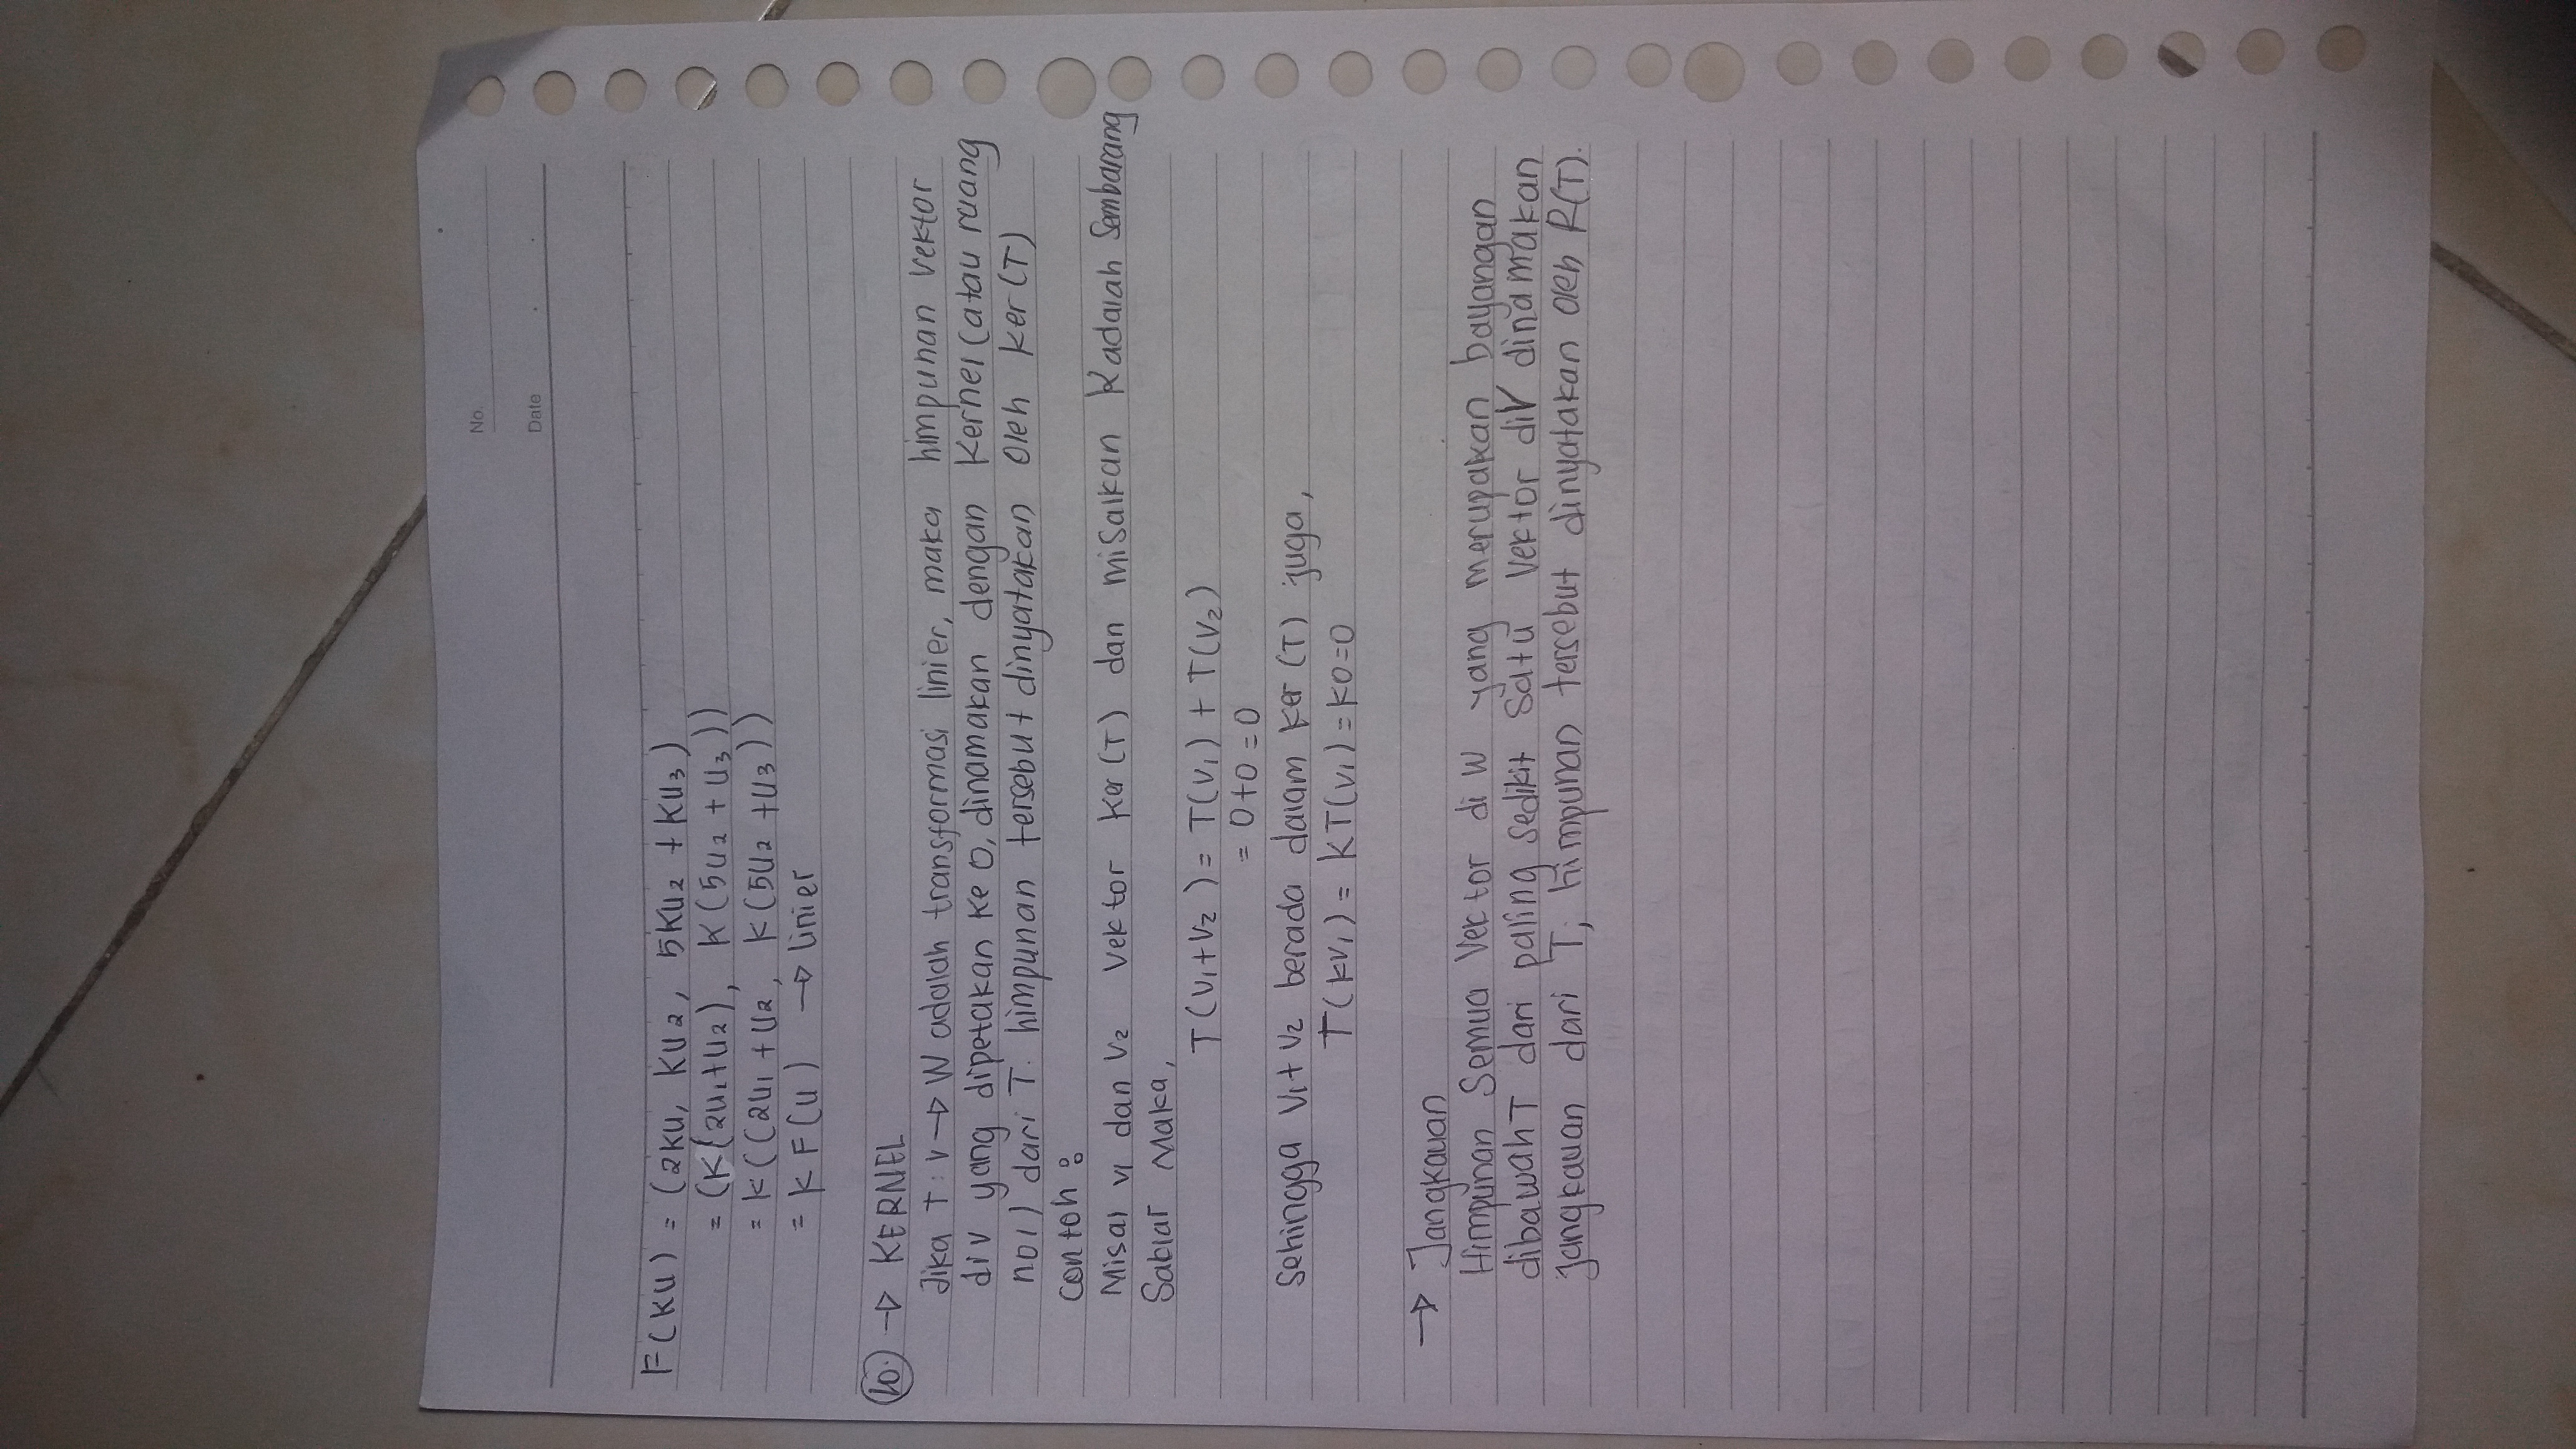 No.
Date
F(KU) = (2KU, KU2, 5KU2 + KU3)
= (K(2U1+U2), K(5U2 + U3))
= K((2U1 + U2, K(5U2 + U3))
= K F(U) → linier
10. → KERNEL
Jika T : V → W adalah transformasi linier, maka himpunan vektor
di V yang dipetakan ke 0, dinamakan dengan Kernel (atau ruang
nol) dari T. himpunan tersebut dinyatakan oleh ker (T)
Contoh :
Misal V1 dan V2 vektor Ker (T) dan misalkan K adalah Sembarang
Sablar Maka,
T(V1+V2) = T(V1) + T(V2)
= 0+0 = 0
Sehingga V1+V2 berada dalam Ker (T) juga,
T(KV1) = KT(V1) = K0=0
→ Jangkauan
Himpunan Semua Vektor di W yang merupakan bayangan
dibawah T dari paling sedikit satu vektor di V dinamakan
jangkauan dari T; himpunan tersebut dinyatakan oleh R(T).